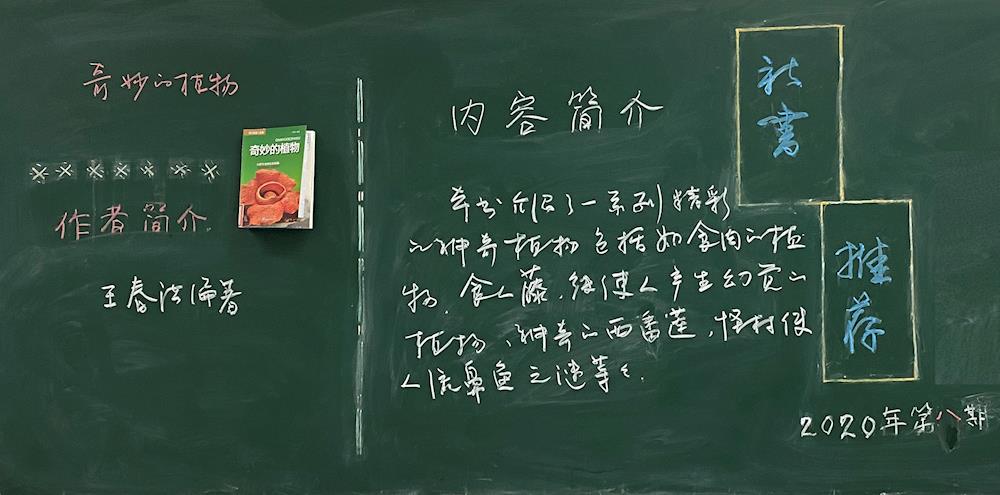 奇妙的植物
奇妙的植物
作者简介
王春法编著
内容简介
本书介绍了一系列精彩
的神奇植物包括如食肉的植
物,食人藤,能使人产生幻觉的
植物、神奇的西番莲,怪树使
人流鼻血之谜等等.
新书
推荐
2020年第八期